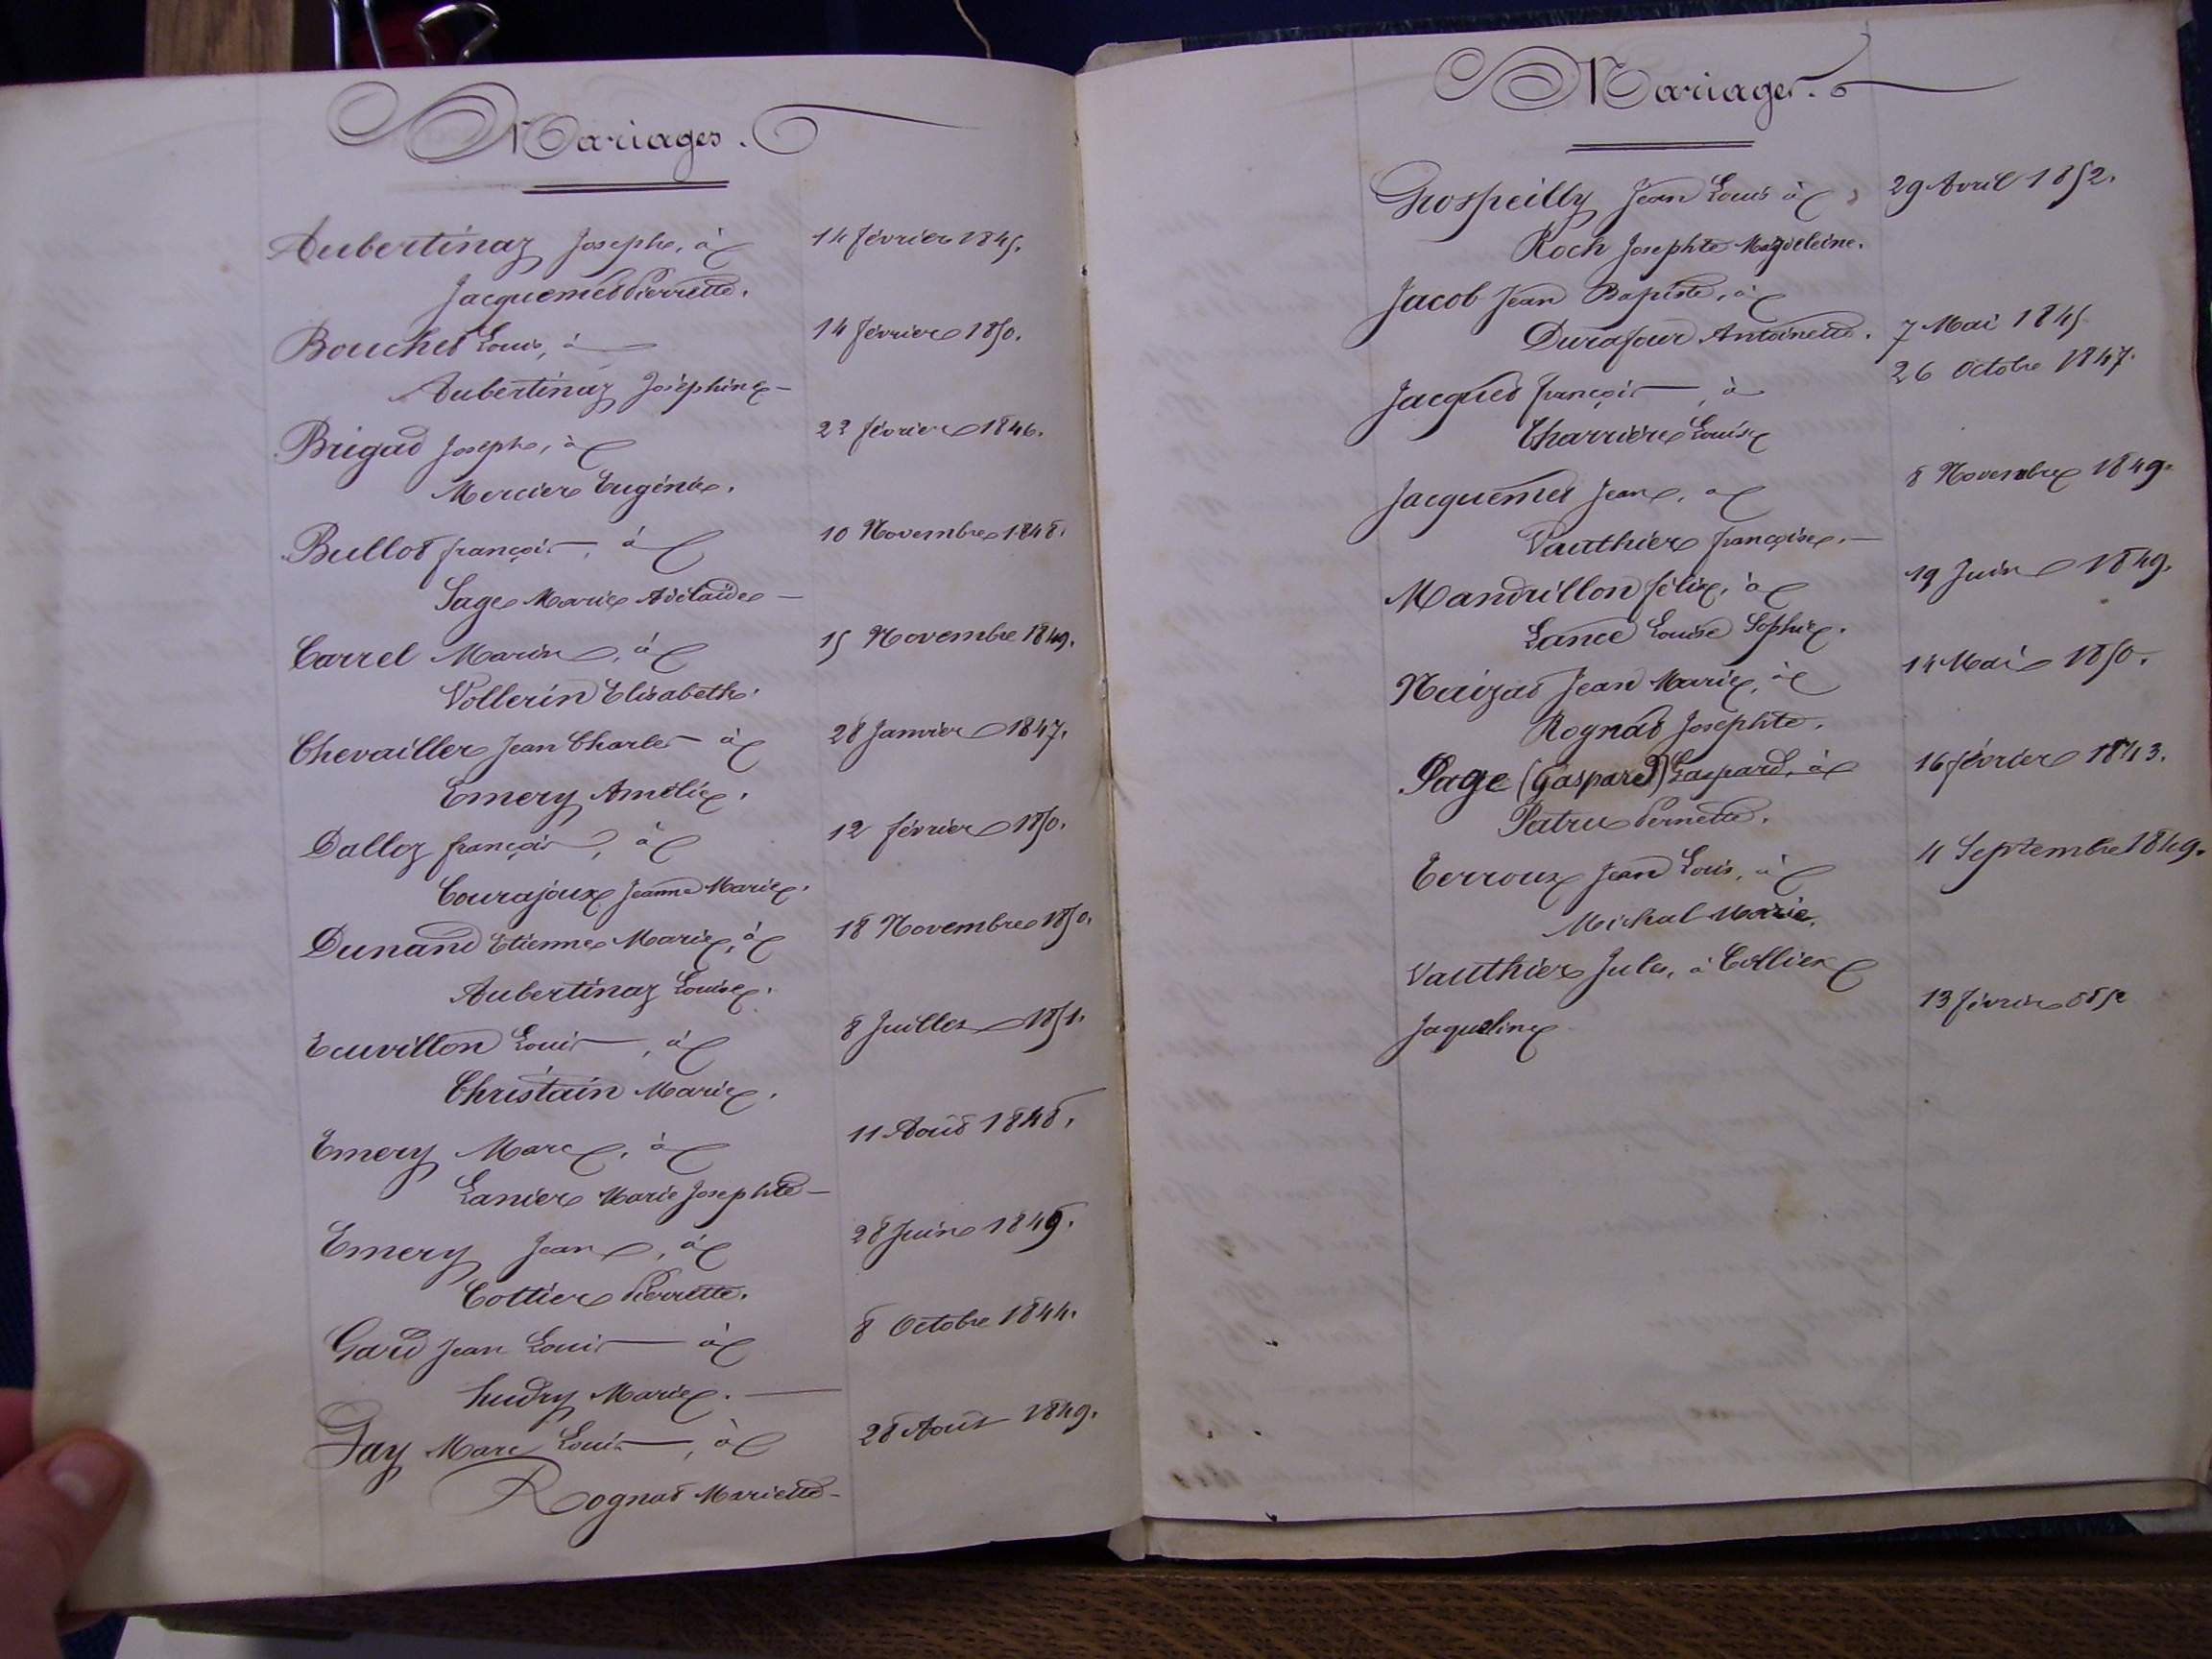 Mariages.
Aubertinaz Josephe, à 14 février 1845.
Jacquemet Pierrette.
Bouchet Louis, à 14 février 1850.
Aubertinaz Joséphine
Brigad Josephe, à 22 février 1846.
Mercier Eugénie.
Bullot françois, à 10 Novembre 1848.
Sage Marie Adélaïde
Carrel Marin, à 15 Novembre 1849.
Vollerin Elisabeth.
Chevailler Jean Charles à 28 Janvier 1847.
Emery Amélie.
Dalloz françois, à 12 février 1850.
Courajoux Jeanne Marie.
Dunand Etienne Marie, à 18 Novembre 1850.
Aubertinaz Louise.
Ecuvillon Louis, à 8 Juillet 1851.
Christain Marie.
Emery Marc, à 11 Août 1848.
Lanier Marie Josephte
Emery Jean, à 28 Juin 1849.
Cottier Pierrette.
Gard Jean Louis à 8 Octobre 1844.
hudry Marie.
Gay Marc Louis, à 28 Août 1849.
Rognat Mariette
Mariages.
Grospeilly Jean Louis à 29 Avril 1852.
Roch Josephte Magdeleine.
Jacob Jean Bapiste, à
Durafour Antoinette. 7 Mai 1845
Jacques françois, à 26 Octobre 1847.
Charrière Louise
Jacquemet Jean, à 8 Novembre 1849.
Vauthier françoise.
Mandrillon félix, à 19 Juin 1849.
Lance Louise Sophie.
Naizat Jean Marie, à 14 Mai 1850.
Rognat Josephte.
Page (Gaspard) Gaspard, à 16 février 1843.
Patru Pernette.
Terroux Jean Louis, à 4 Septembre 1849.
Michal Marie.
Vauthier Jules, à Collier
Jaqueline 13 février